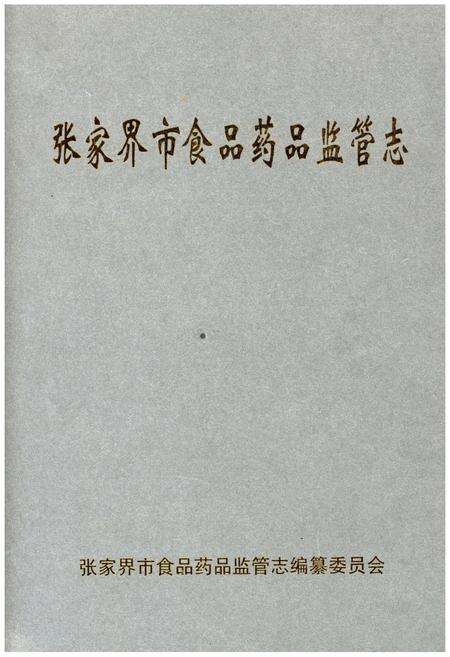 张家界市食品药品监管志
张家界市食品药品监管志编纂委员会